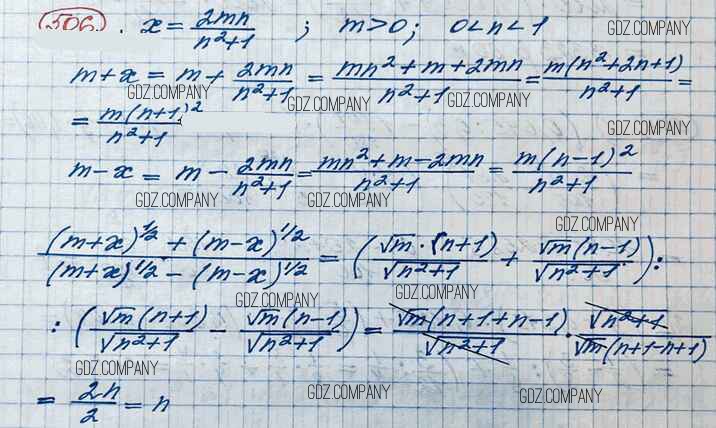 506. x = 2mn/(n²+1) ; m>0; 0<n<1 GDZ.COMPANY
m+x = m + 2mn/(n²+1) = (mn²+m+2mn)/(n²+1) = m(n²+2n+1)/(n²+1) =
GDZ.COMPANY GDZ.COMPANY GDZ.COMPANY
= m(n+1)²/(n²+1) GDZ.COMPANY
m-x = m - 2mn/(n²+1) = (mn²+m-2mn)/(n²+1) = m(n-1)²/(n²+1)
GDZ.COMPANY GDZ.COMPANY
GDZ.COMPANY
((m+x)^1/2 + (m-x)^1/2)/((m+x)^1/2 - (m-x)^1/2) = (√m·(n+1)/√(n²+1) + √m(n-1)/√(n²+1)):
GDZ.COMPANY GDZ.COMPANY
:(√m(n+1)/√(n²+1) - √m(n-1)/√(n²+1)) = √m(n+1+n-1)/√(n²+1) · √(n²+1)/(√m(n+1-n+1))
GDZ.COMPANY
= 2n/2 = n GDZ.COMPANY GDZ.COMPANY